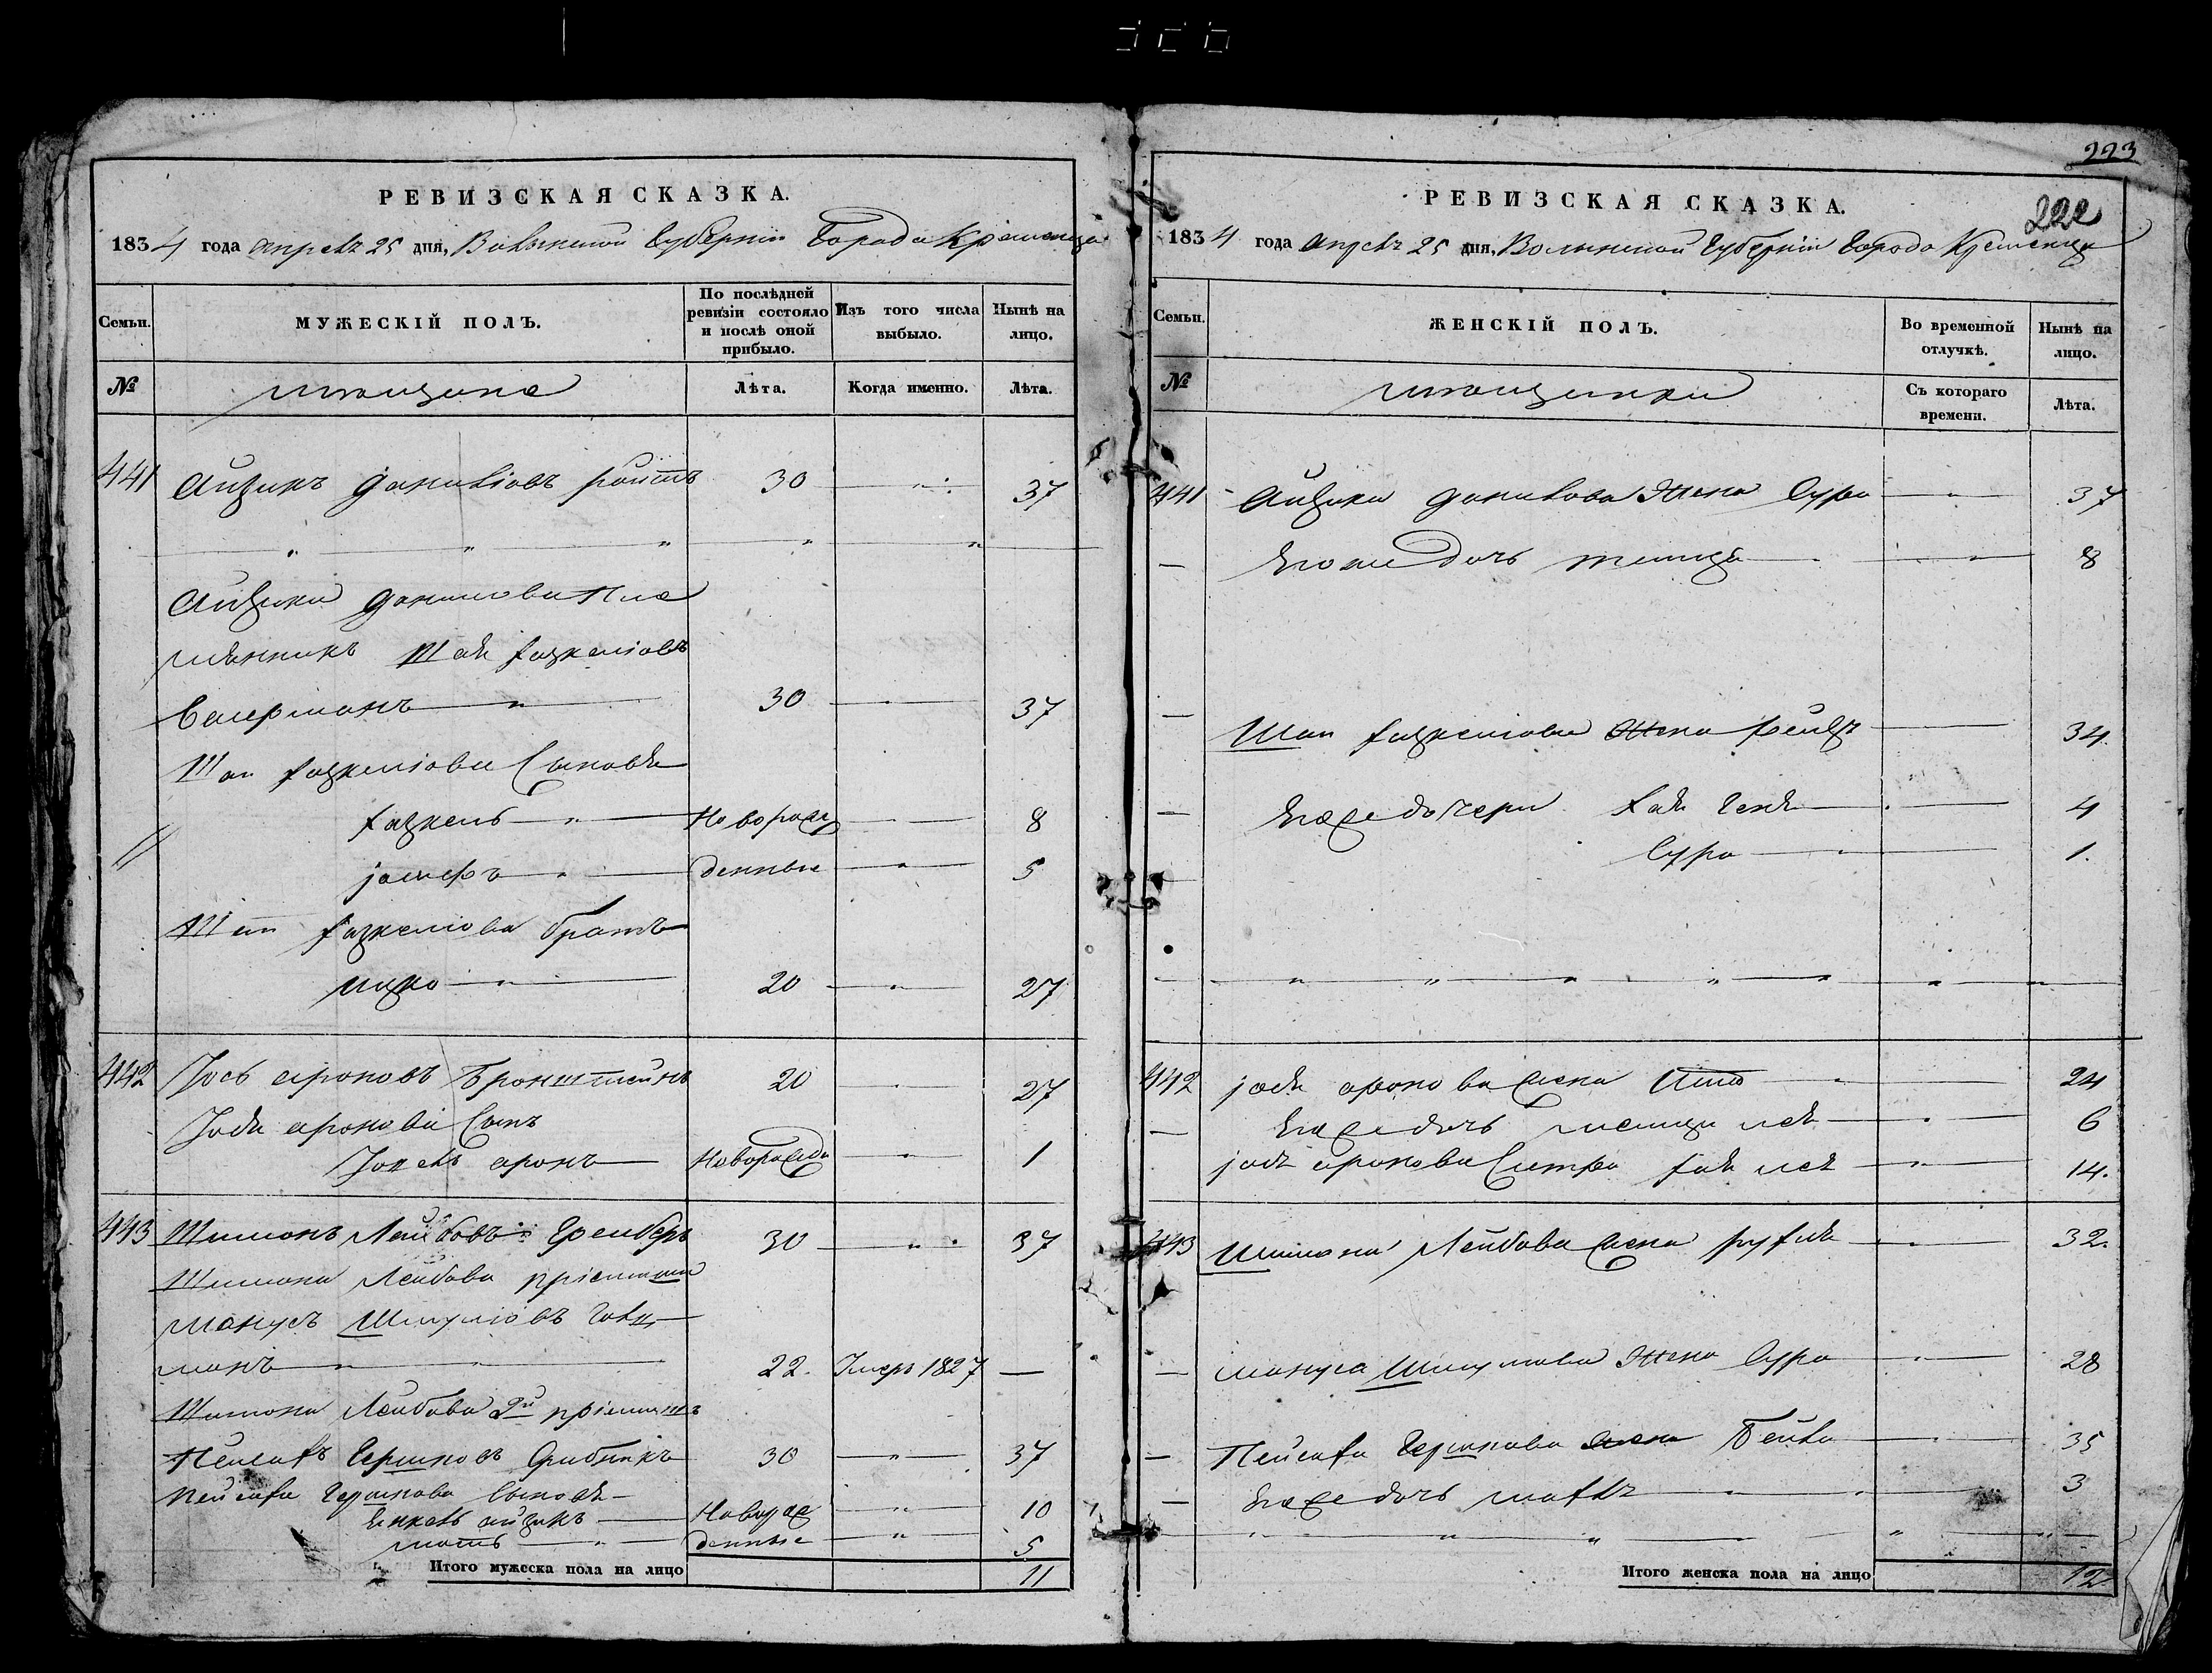 223
РЕВИЗСКАЯ СКАЗКА.
1834 года апрель 25 дня, Волынской Губерніи Города Кременца
Семьи.
МУЖЕСКІЙ ПОЛЪ.
По послѣдней ревизіи состояло и послѣ оной прибыло.
Изъ того числа выбыло.
Нынѣ на лицо.
№
мещане
Лѣта.
Когда именно.
Лѣта.
441 Айзикъ Даниліовъ Ройтъ 30 37
Айзика Данилова пле
мянникъ Шая Хацкеліовъ
30 37
Шаи Хацкеліова Сыновья
Хацкель Новорож 8
Іосифъ денные 5
Шаи Хацкеліова братъ
Ицко 20 27
442 Іось Ароновъ Бронштейнъ 20 27
Іося Аронова Сынъ
Аронъ Новорожд 1
443 Шимонъ Лейбовъ 30 37
Шимона Лейбова пріемышъ
Манусъ Шмуліовъ Гольц
манъ 22. Умеръ 1827 —
Шимона Лейбова 2й пріемышъ
Пейсахъ Гершковъ 30 37
Пейсаха Гершкова Сыновья
Янкель Айзикъ Новорож 10
денные 5
Итого мужеска пола на лицо 11
РЕВИЗСКАЯ СКАЗКА.
222
1834 года апрель 25 дня, Волынской Губерніи Города Кременца
Семьи.
ЖЕНСКІЙ ПОЛЪ.
Во временной отлучкѣ.
Нынѣ на лицо.
№
мещанки
Съ котораго времени.
Лѣта.
441 Айзика Данилова Жена Сура 37
Его же дочь 8
Шаи Хацкеліова Жена Фейга 34.
Его же дочери Хая Геня 4
Сура 1.
442 Іося Аронова жена 24
Его же дочь Лея 6
Іося Аронова Сестра Хая Лея 14.
443 Шимона Лейбова жена Рухля 32.
Мануса Шмулиова Жена Сура 28
Пейсаха Гершкова жена Бейла 35
Его же дочь 3
Итого женска пола на лицо 12